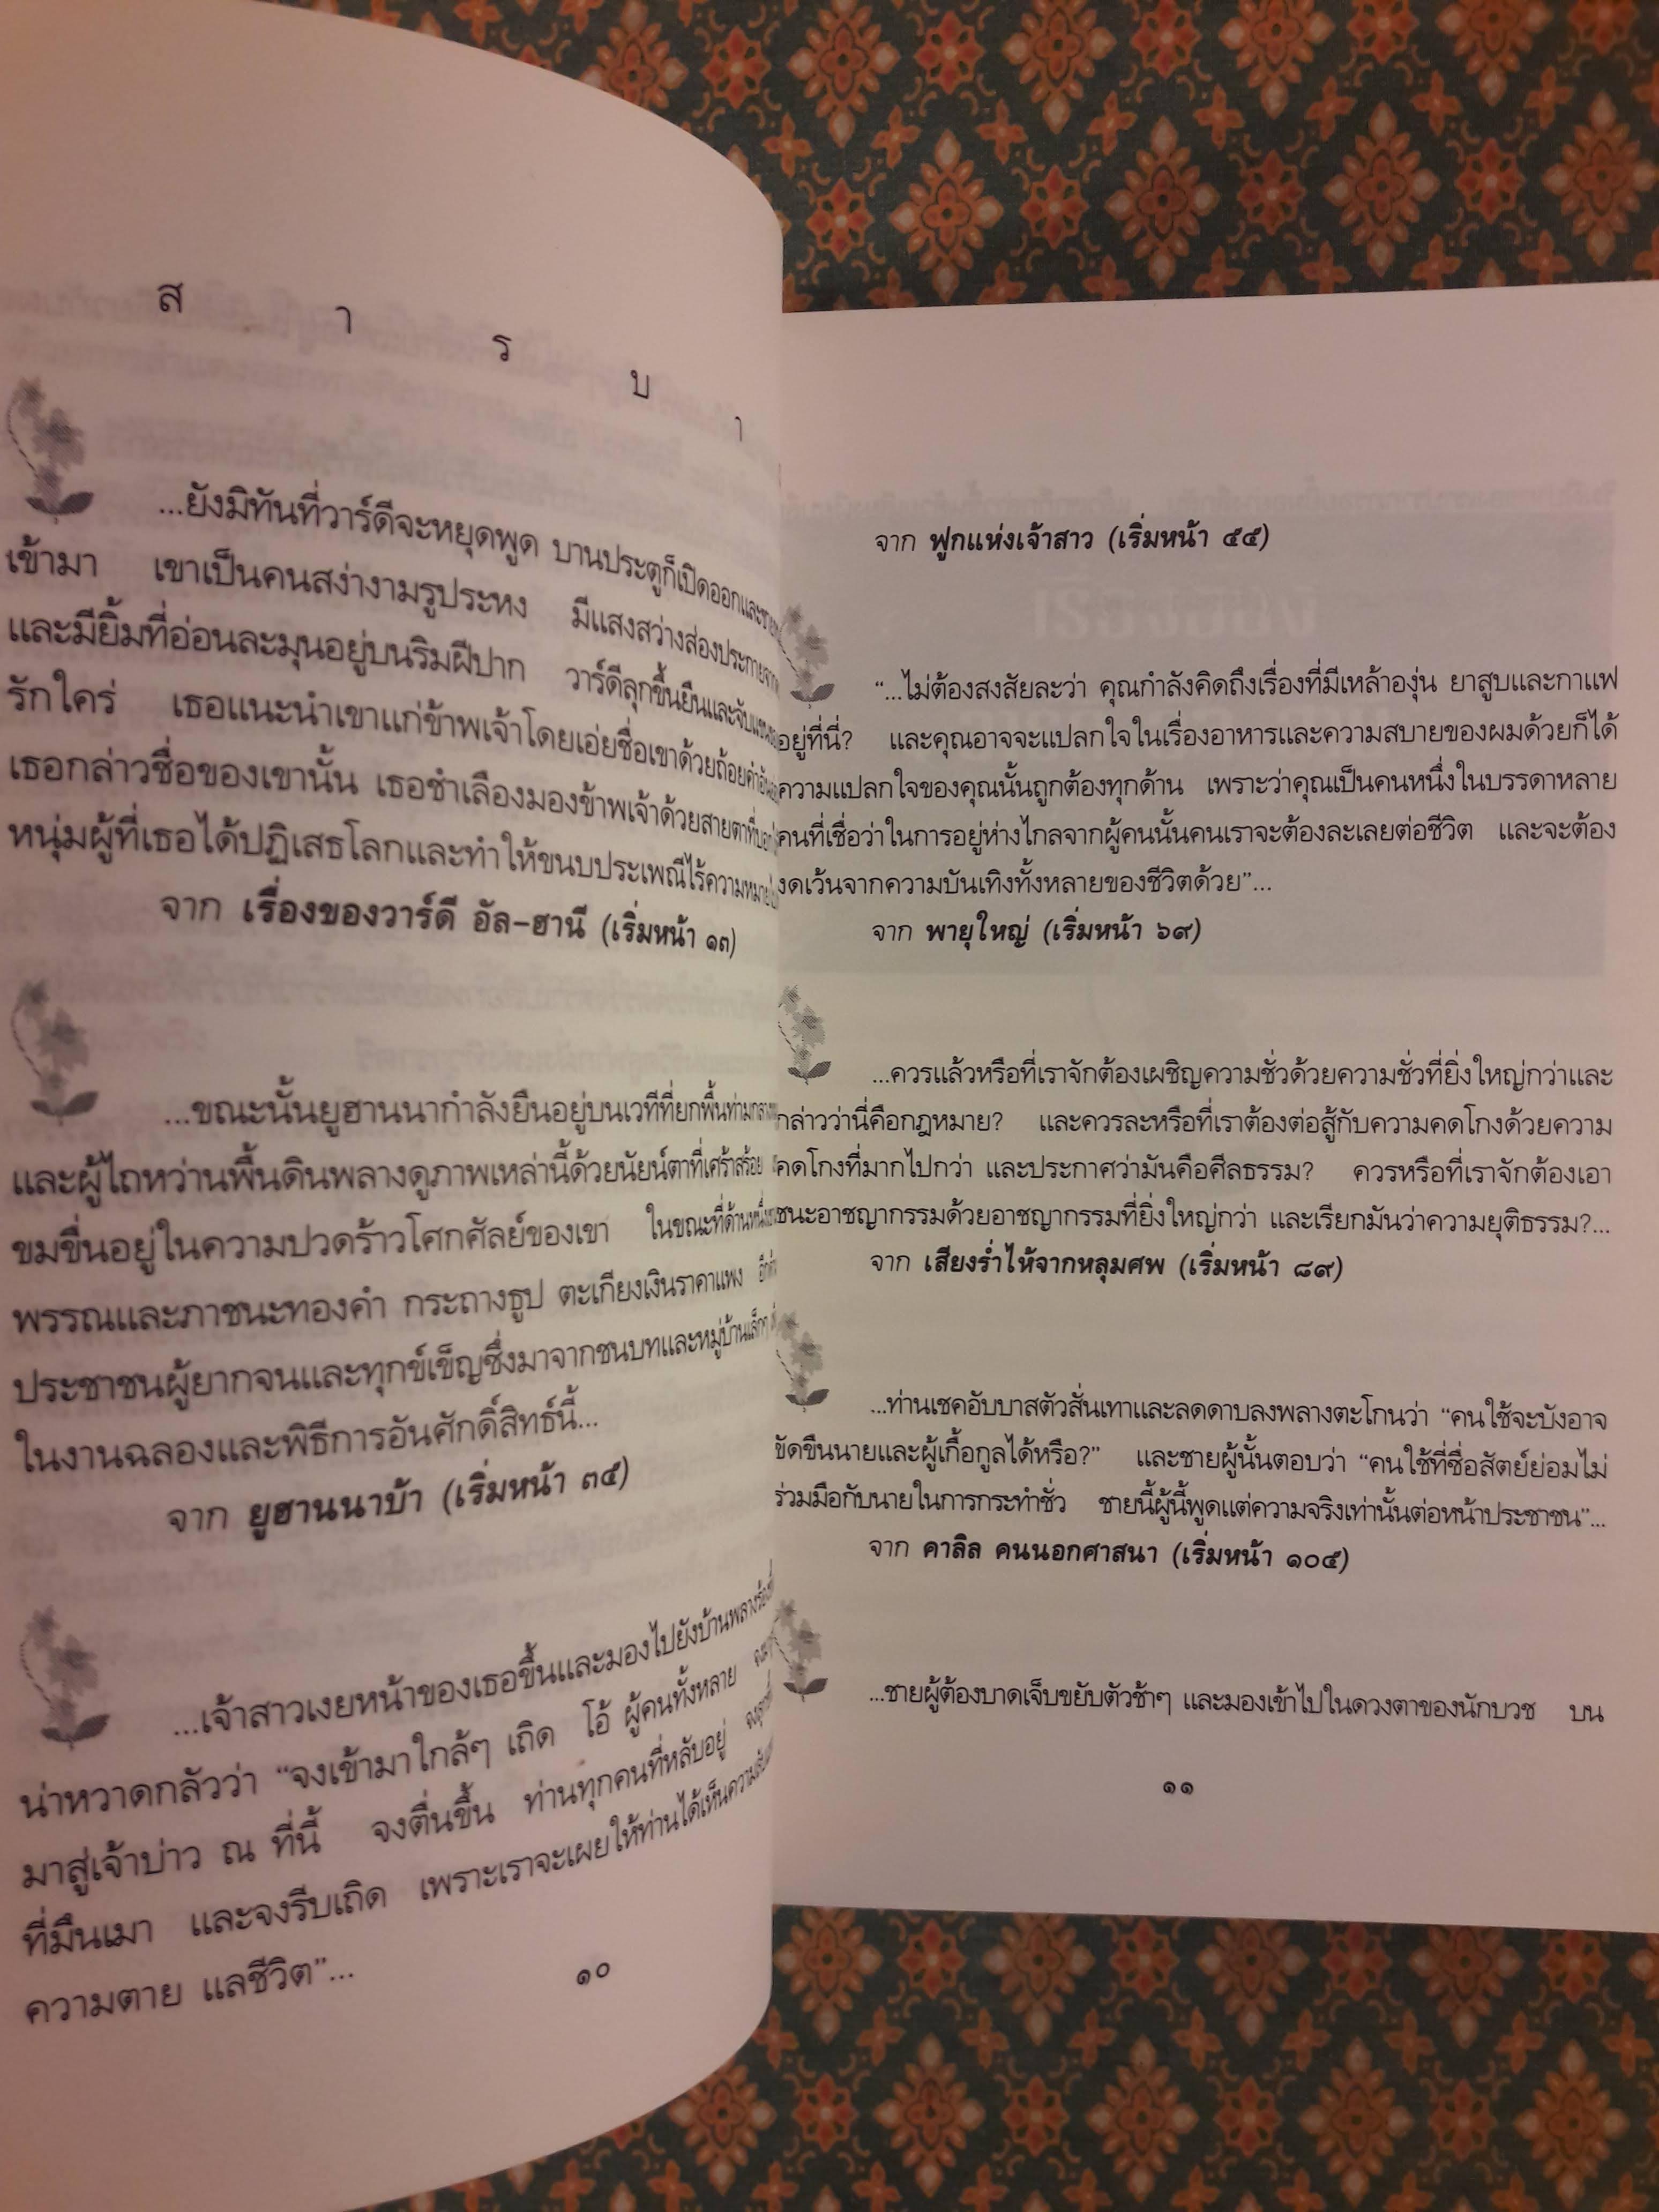 ส า ร บ า
...ยังมิทันที่วาร์ดีจะหยุดพูด บานประตูก็เปิดออกและชาย
เข้ามา เขาเป็นคนสง่างามรูประหง มีแสงสว่างส่องประกายจาก
และมียิ้มที่อ่อนละมุนอยู่บนริมฝีปาก วาร์ดีลุกขึ้นยืนและจับแขน
รักใคร่ เธอแนะนำเขาแก่ข้าพเจ้าโดยเอ่ยชื่อเขาด้วยถ้อยคำอัน
เธอกล่าวชื่อของเขานั้น เธอชำเลืองมองข้าพเจ้าด้วยสายตาที่
หนุ่มผู้ที่เธอได้ปฏิเสธโลกและทำให้ขนบประเพณีไร้ความหมาย
จาก เรื่องของวาร์ดี อัล-ฮานี (เริ่มหน้า ๑๓)
...ขณะนั้นยูฮานนากำลังยืนอยู่บนเวทีที่ยกพื้นท่ามกลาง
และผู้ไถหว่านพื้นดินพลางดูภาพเหล่านี้ด้วยนัยน์ตาที่เศร้าสร้อย
ขมขื่นอยู่ในความปวดร้าวโศกศัลย์ของเขา ในขณะที่ด้านหนึ่ง
พรรณและภาชนะทองคำ กระถางธูป ตะเกียงเงินราคาแพง
ประชาชนผู้ยากจนและทุกข์เข็ญซึ่งมาจากชนบทและหมู่บ้านเล็กๆ
ในงานฉลองและพิธีการอันศักดิ์สิทธ์นี้...
จาก ยูฮานนาบ้า (เริ่มหน้า ๓๕)
...เจ้าสาวเงยหน้าของเธอขึ้นและมองไปยังบ้านพลางร้อง
น่าหวาดกลัวว่า “จงเข้ามาใกล้ๆ เถิด โอ้ ผู้คนทั้งหลาย
มาสู่เจ้าบ่าว ณ ที่นี้ จงตื่นขึ้น ท่านทุกคนที่หลับอยู่
ที่มึนเมา และจงรีบเถิด เพราะเราจะเผยให้ท่านได้เห็นความ
ความตาย แลชีวิต”...
๑๐
จาก ฟูกแห่งเจ้าสาว (เริ่มหน้า ๕๕)
“...ไม่ต้องสงสัยละว่า คุณกำลังคิดถึงเรื่องที่มีเหล้าองุ่น ยาสูบและกาแฟ
อยู่ที่นี่? และคุณอาจจะแปลกใจในเรื่องอาหารและความสบายของผมด้วยก็ได้
ความแปลกใจของคุณนั้นถูกต้องทุกด้าน เพราะว่าคุณเป็นคนหนึ่งในบรรดาหลาย
คนที่เชื่อว่าในการอยู่ห่างไกลจากผู้คนนั้นคนเราจะต้องละเลยต่อชีวิต และจะต้อง
งดเว้นจากความบันเทิงทั้งหลายของชีวิตด้วย”...
จาก พายุใหญ่ (เริ่มหน้า ๖๙)
...ควรแล้วหรือที่เราจักต้องเผชิญความชั่วด้วยความชั่วที่ยิ่งใหญ่กว่าและ
กล่าวว่านี่คือกฎหมาย? และควรละหรือที่เราต้องต่อสู้กับความคดโกงด้วยความ
คดโกงที่มากไปกว่า และประกาศว่ามันคือศีลธรรม? ควรหรือที่เราจักต้องเอา
ชนะอาชญากรรมด้วยอาชญากรรมที่ยิ่งใหญ่กว่า และเรียกมันว่าความยุติธรรม?...
จาก เสียงร่ำไห้จากหลุมศพ (เริ่มหน้า ๘๙)
...ท่านเชคอับบาสตัวสั่นเทาและลดดาบลงพลางตะโกนว่า “คนใช้จะบังอาจ
ขัดขืนนายและผู้เกื้อกูลได้หรือ?” และชายผู้นั้นตอบว่า “คนใช้ที่ซื่อสัตย์ย่อมไม่
ร่วมมือกับนายในการกระทำชั่ว ชายนี้ผู้นี้พูดแต่ความจริงเท่านั้นต่อหน้าประชาชน”...
จาก คาลิล คนนอกศาสนา (เริ่มหน้า ๑๐๕)
...ชายผู้ต้องบาดเจ็บขยับตัวช้าๆ และมองเข้าไปในดวงตาของนักบวช บน
๑๑